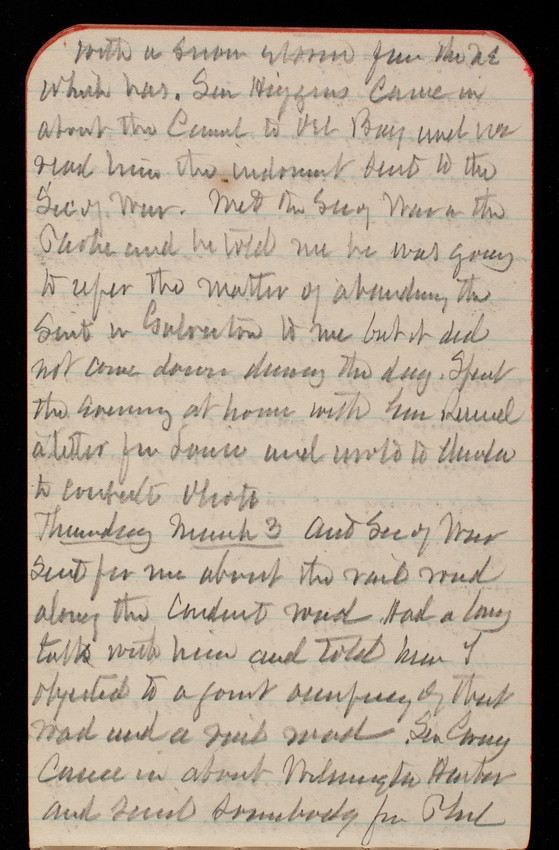 with a snow storm from the NE
which has. Sen Higgins came in
about the Canal to Del Bay and we
read him the indorsmt sent to the
Sec of War. Met the Sec of War in the
and he told me he was going
to refer the matter of abandong the
suit in Galveston to me but it did
not come down during the day. Spent
the evening at home with Gen
a letter fm and wrote to
to consult
Thursday March 3 and Sec of War
sent for me about the rail road
along the Conduit road. Had a long
talk with him and told him I
objected to a joint occupncy of that
road and a rail road. Sen
came in about Wilmington Harbor
and send somebody fm Phil